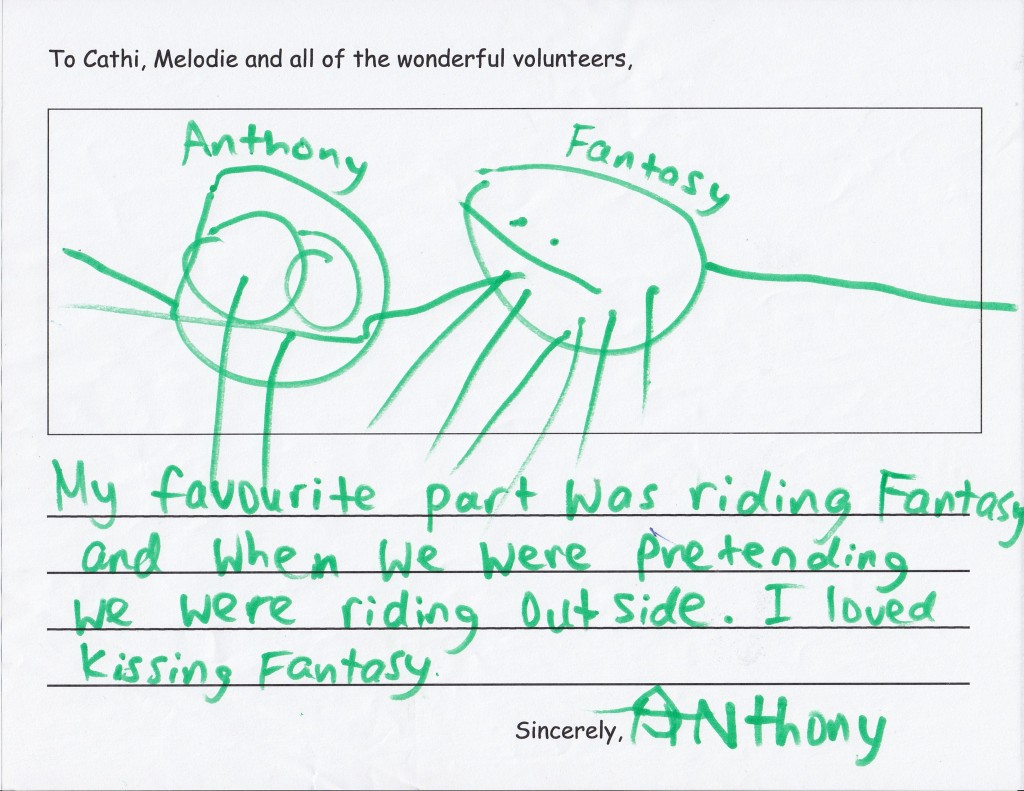 To Cathi, Melodie and all of the wonderful volunteers,
Anthony
Fantasy
My favourite part was riding Fantasy
and when we were pretending
we were riding outside. I loved
kissing Fantasy.
Sincerely, ANthony